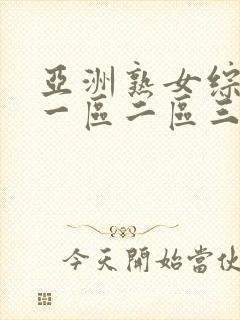 亞洲熟女綜
一區二區三
今天開始當伙